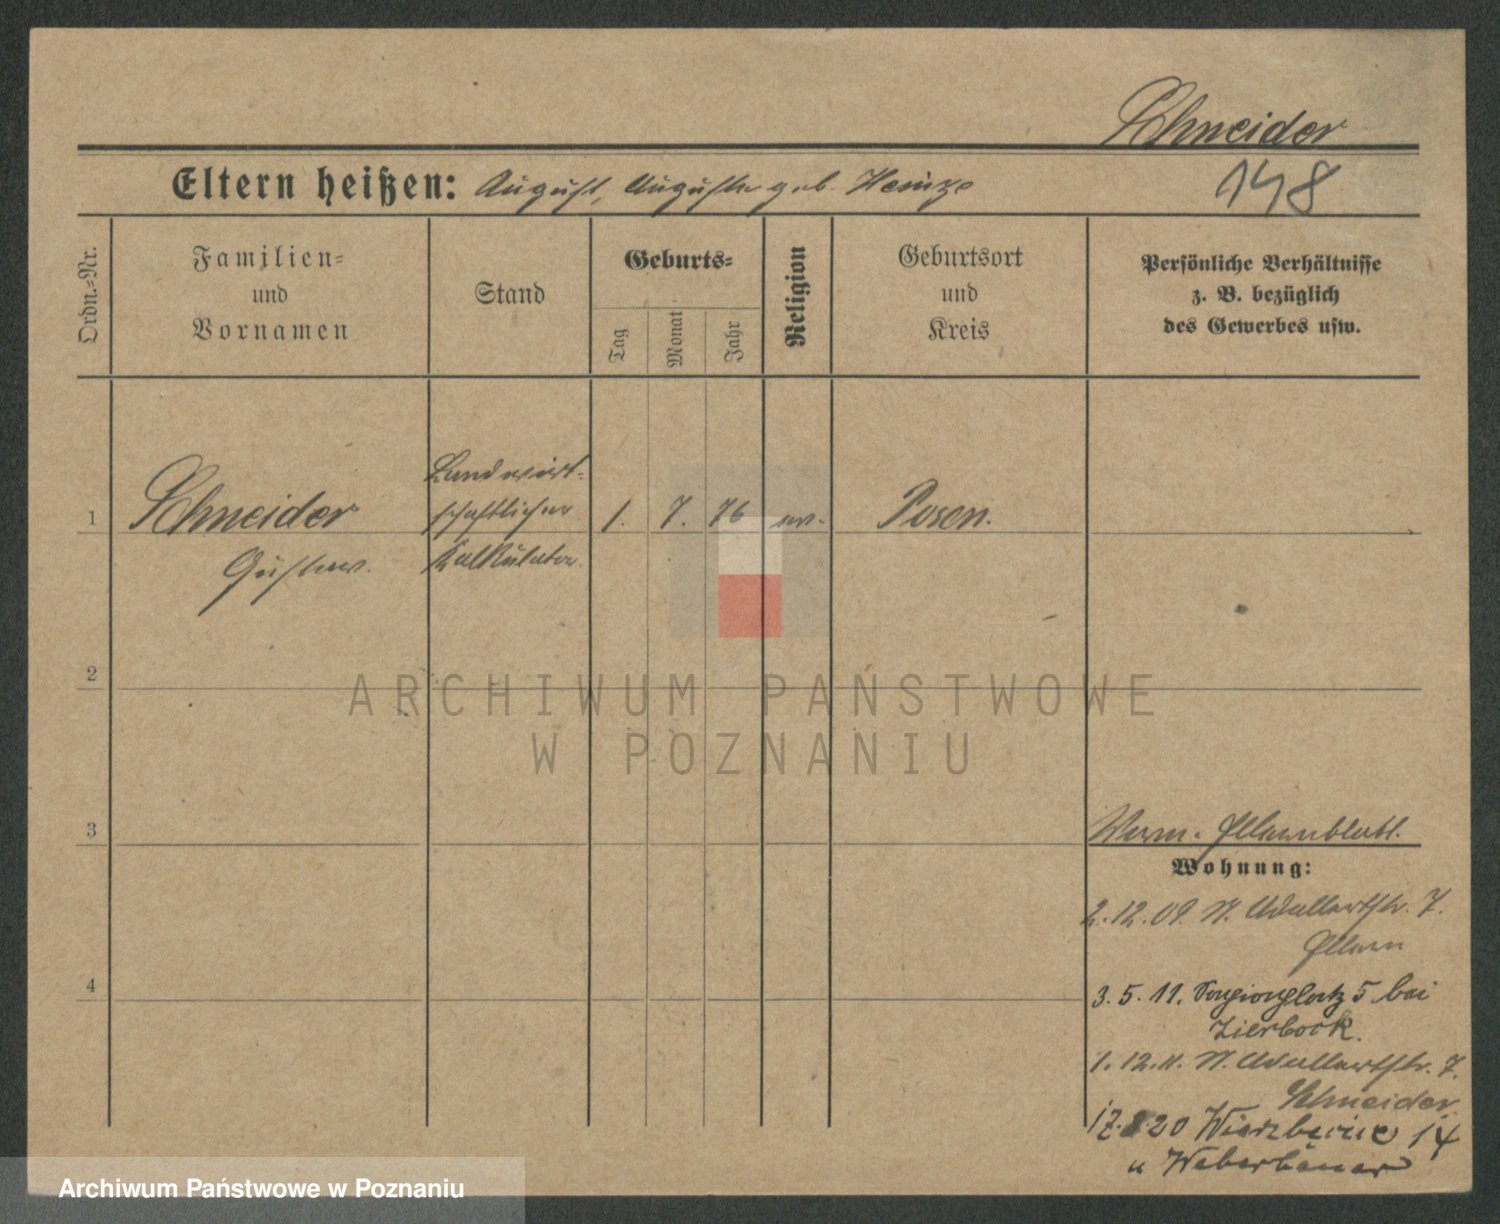 Schneider
Eltern heißen: August, Auguste geb. Heinze
148
Ordn.-Nr.
Familien-
und
Vornamen
Stand
Geburts-
Tag
Monat
Jahr
Religion
Geburtsort
und
Kreis
Persönliche Verhältnisse
z. B. bezüglich
des Gewerbes usw.
1
Schneider
Gustav.
Landwirt-
schaftlicher
Kalkulator.
1. 7. 76 ev. Posen.
2
ARCHIWUM PAŃSTWOWE
W POZNANIU
3
Elternblatt.
Wohnung:
2. 12. 09. N. 7.
Eltern
4
3. 5. 11. 5 bei
Zierbock.
1. 12. 11. N. 7.
Schneider
17.8.20 14
u
Archiwum Państwowe w Poznaniu